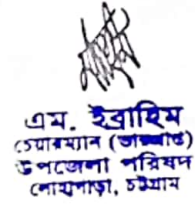 এম. ইব্রাহিম
চেয়ারম্যান (ভারপ্রাপ্ত)
উপজেলা পরিষদ
লোহাগাড়া, চট্টগ্রাম